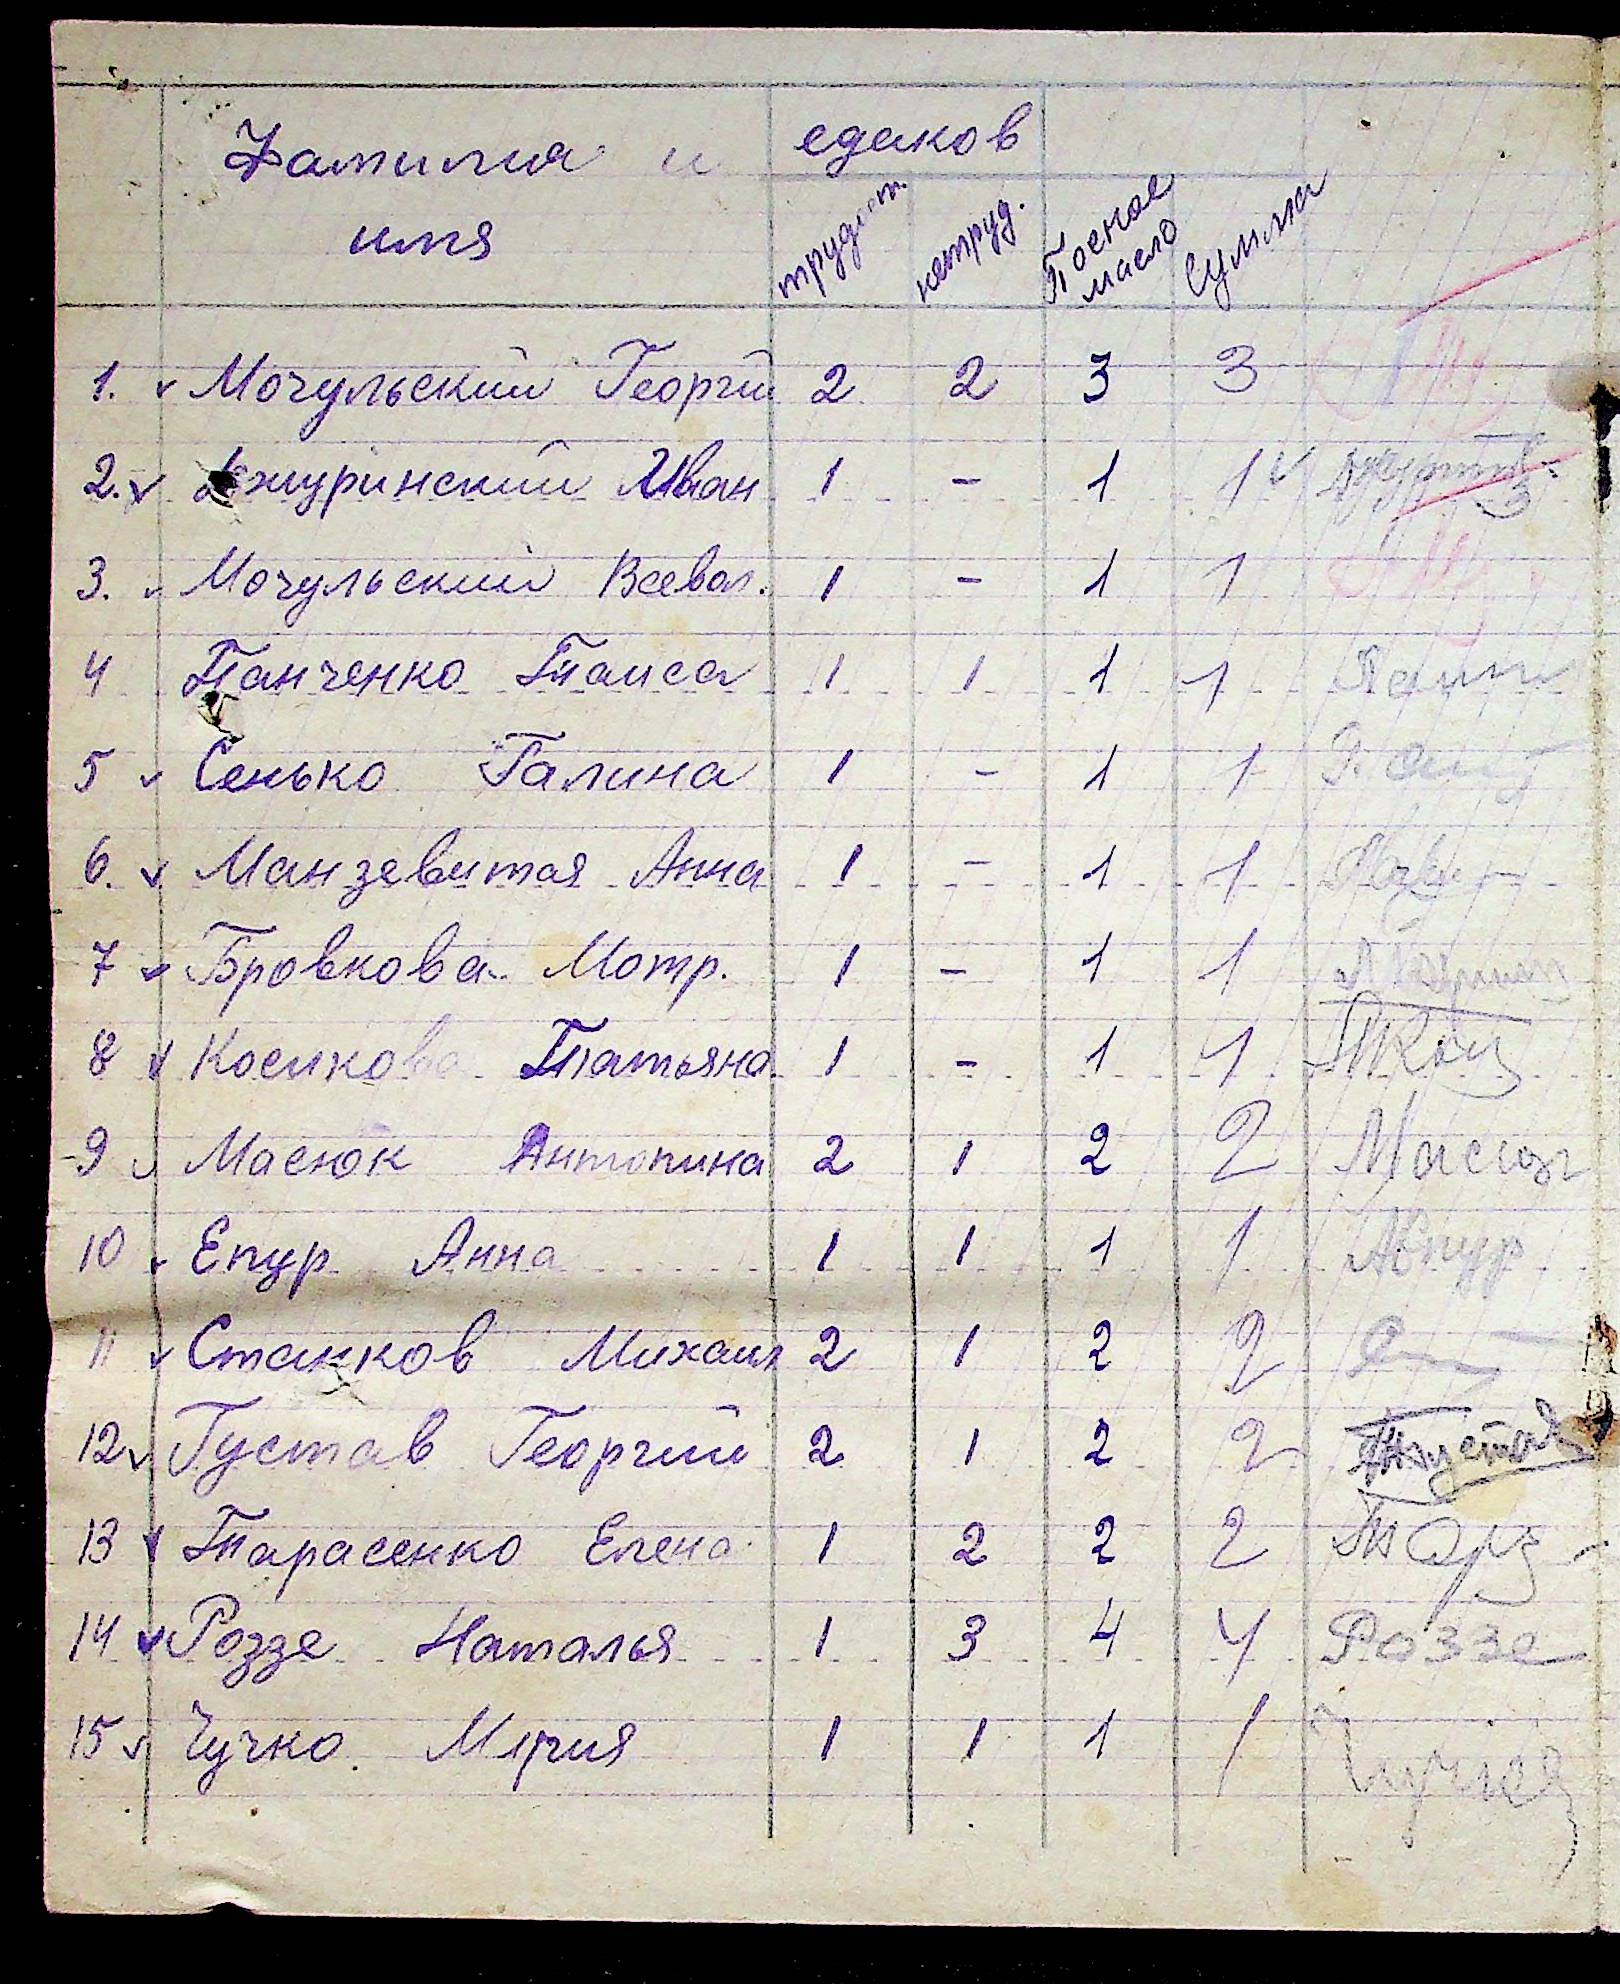 Фамилия и едаков
имя трудосп. нетруд. Посное масло Сумма
1. Мочульский Георгий 2 2 3 3
2. Ажуринский Иван 1 - 1 1
3. Мочульский Всевол. 1 - 1 1
4 Панченко Таиса 1 1 1 1
5 Сенько Галина 1 - 1 1
6. Манзевитая Анна 1 - 1 1
7 Бровкова Мотр. 1 - 1 1
8 Косикова Татьяна 1 - 1 1
9 Масюк Антонина 2 1 2 2
10 Епур Анна 1 1 1 1 АЕпур
11 Станков Михаил 2 1 2 2
12 Густав Георгий 2 1 2 2
13 Тарасенко Елена 1 2 2 2
14 Роззе Наталья 1 3 4 4 Роззе
15 Чучко Мария 1 1 1 1